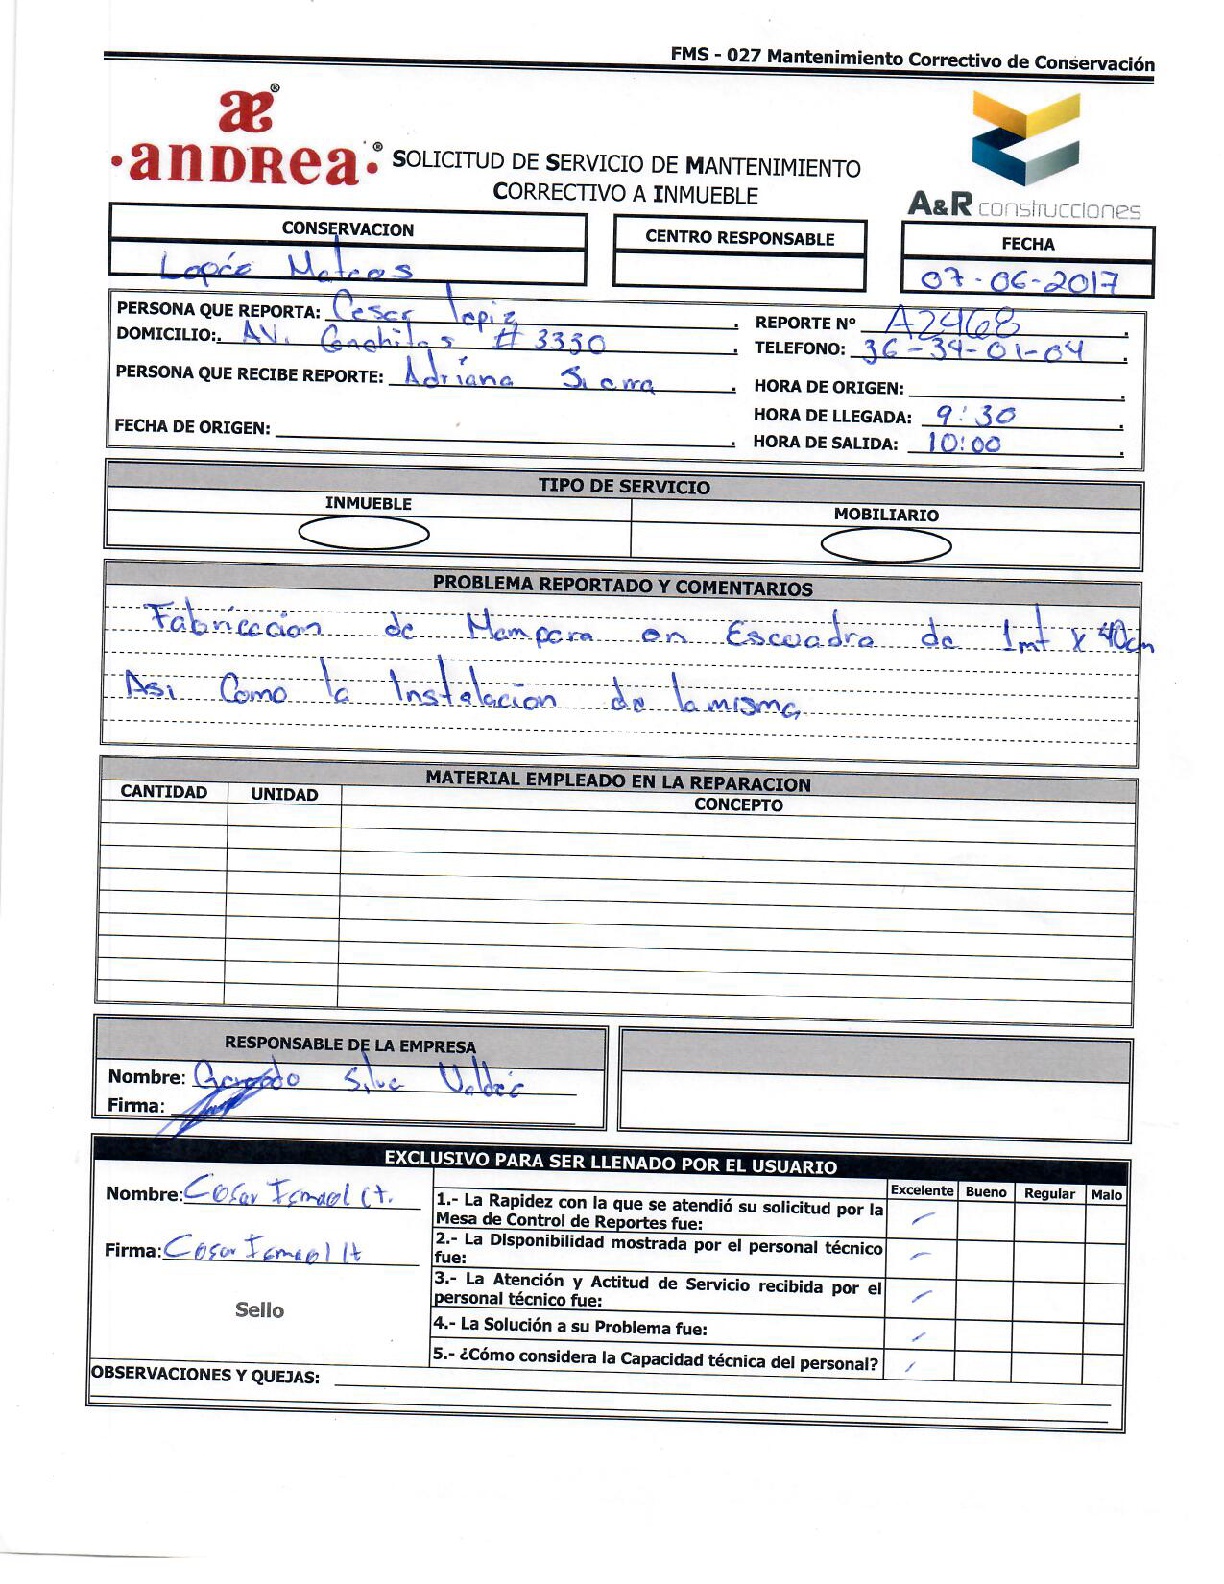 FMS - 027 Mantenimiento Correctivo de Conservación
æ®
·anDRea·®
SOLICITUD DE SERVICIO DE MANTENIMIENTO
CORRECTIVO A INMUEBLE
A&R construcciones
CONSERVACION
Lopéz Mateos
CENTRO RESPONSABLE
FECHA
07-06-2017
PERSONA QUE REPORTA: Cesar
REPORTE Nº A2468.
DOMICILIO:. AV. # 3330.
TELEFONO: 36-34-01-04.
PERSONA QUE RECIBE REPORTE: Adriana Sierra.
HORA DE ORIGEN: .
HORA DE LLEGADA: 9:30.
FECHA DE ORIGEN: .
HORA DE SALIDA: 10:00.
TIPO DE SERVICIO
INMUEBLE
MOBILIARIO
PROBLEMA REPORTADO Y COMENTARIOS
Fabricacion de Mampara en Escuadra de 1mt x 40cm
Asi Como la Instalacion de la misma
MATERIAL EMPLEADO EN LA REPARACION
CANTIDAD UNIDAD CONCEPTO
RESPONSABLE DE LA EMPRESA
Nombre: Gerardo Silva Valdéz
Firma:
EXCLUSIVO PARA SER LLENADO POR EL USUARIO
Nombre: Cesar Ismael Lt.
Excelente Bueno Regular Malo
1.- La Rapidez con la que se atendió su solicitud por la
Mesa de Control de Reportes fue:
Firma: Cesar Ismael lt
2.- La Disponibilidad mostrada por el personal técnico
fue:
3.- La Atención y Actitud de Servicio recibida por el
personal técnico fue:
Sello
4.- La Solución a su Problema fue:
5.- ¿Cómo considera la Capacidad técnica del personal?
OBSERVACIONES Y QUEJAS: